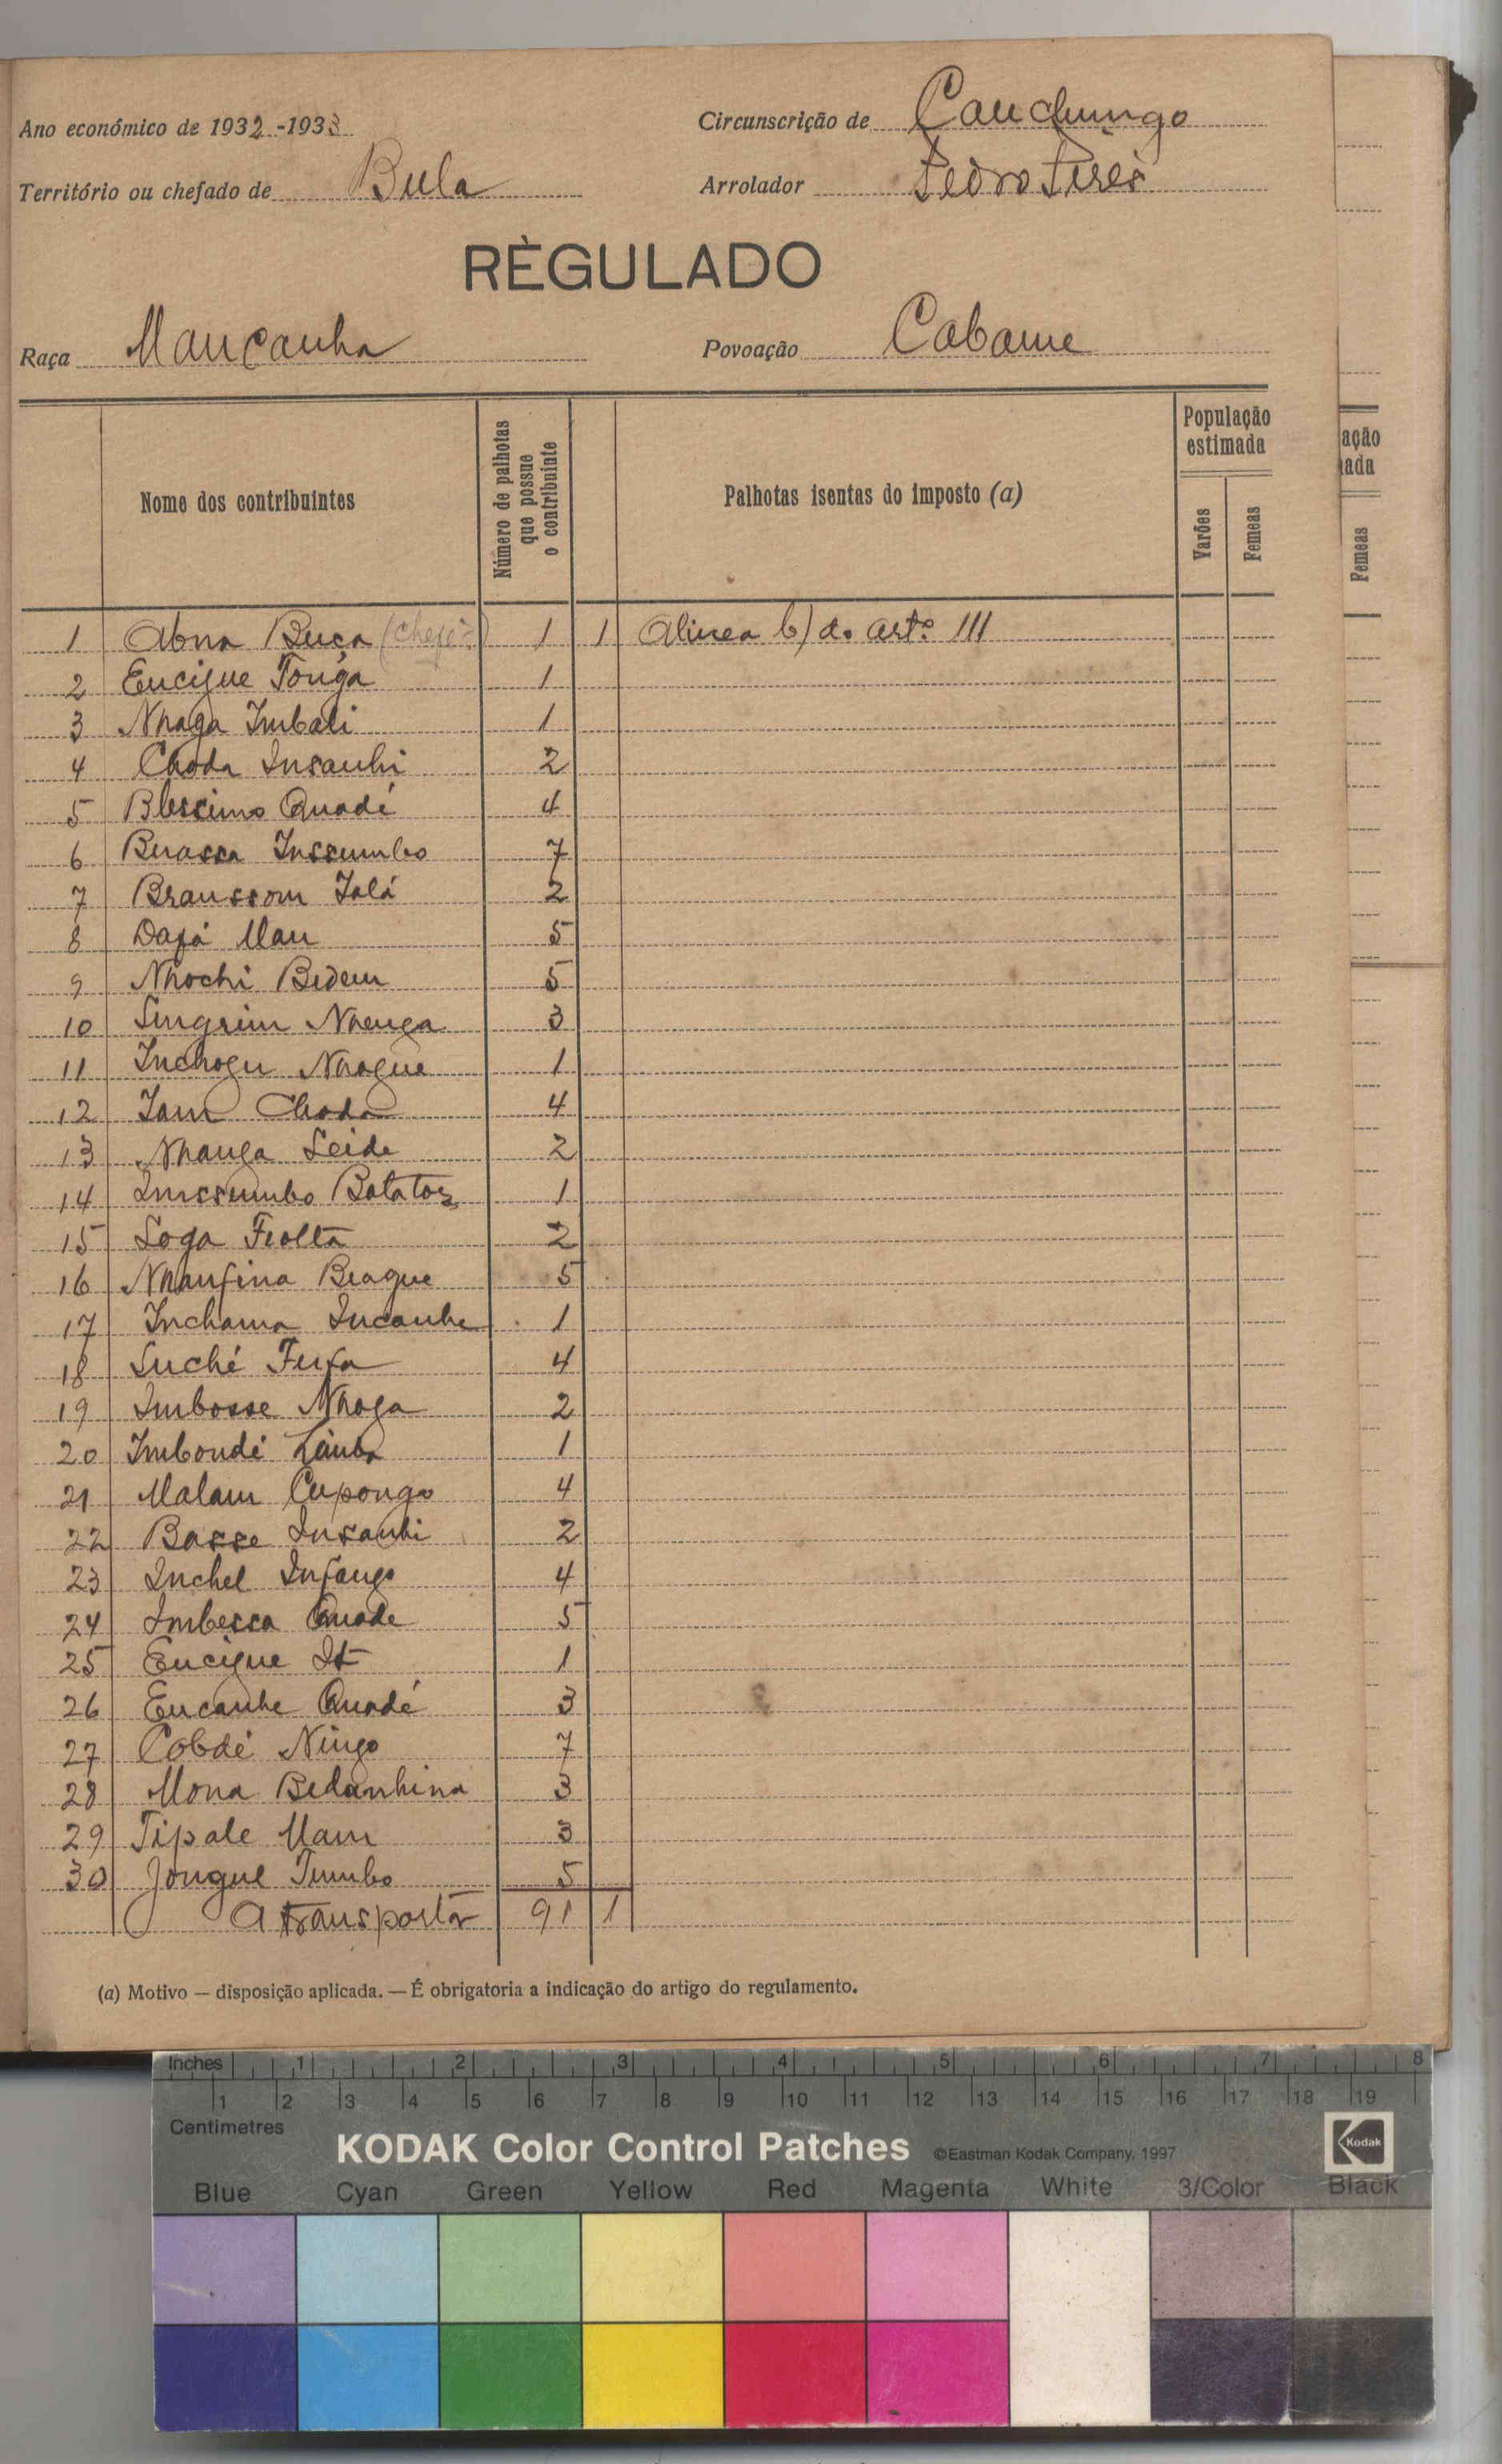 Ano económico de 1932-1933
Circunscrição de Canchungo
Território ou chefado de Bula
Arrolador Pedro Pires
RÈGULADO
Raça Mancanha
Povoação Cabame
Nome dos contribuintes
Número de palhotas que possue o contribuinte
Palhotas isentas do imposto (a)
População estimada
Varões
Femeas
1 Abna Buça (chefe) 1 1 Alinea b) do artº 111
2 Encique Tonga 1
3 Nhaga Imbali 1
4 Choda Insanhi 2
5 Blessimo Quadé 4
6 Buassa Inssumbo 7
7 Branssom Jalá 2
8 Dafá Mau 5
9 Nhochi Bidem 5
10 Singrim Nhenga 3
11 Inchogu Nhague 1
12 Jam Choda 4
13 Nhanga Leide 2
14 Imssumbo Batatoz 1
15 Soga Fiolta 2
16 Nhanfina Biague 5
17 Inchama Incanhe 1
18 Suché Fufa 4
19 Imbosse Nhaga 2
20 Imbondé 1
21 Malam Cupongo 4
22 Basse Insanhi 2
23 Inchel Infango 4
24 Imbessa Quade 5
25 Encique It 1
26 Encanhe Quadé 3
27 Cobdé Ningo 7
28 Mona Bidanhina 3
29 Tipale Mam 3
30 Jongue Tumbo 5
A transportar 91 1
(a) Motivo — disposição aplicada. — É obrigatoria a indicação do artigo do regulamento.
ação
ada
Femeas
Inches 1 2 3 4 5 6 7 8
1 2 3 4 5 6 7 8 9 10 11 12 13 14 15 16 17 18 19
Centimetres
KODAK Color Control Patches ©Eastman Kodak Company, 1997 Kodak
Blue Cyan Green Yellow Red Magenta White 3/Color Black